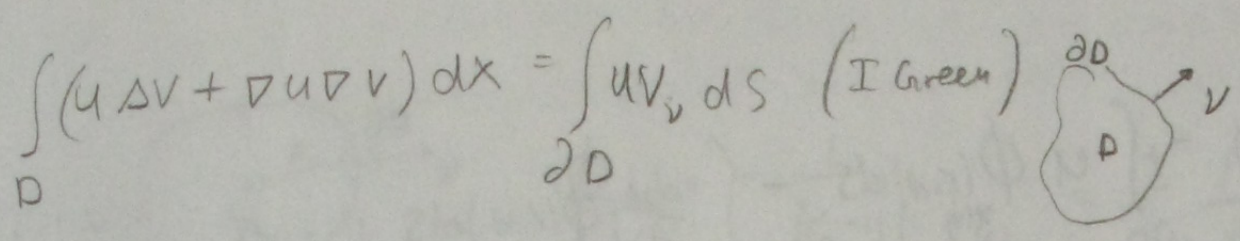 ∫_D (u Δv + ∇u∇v) dx = ∫_{∂D} u v_ν dS (I Green)
∂D
ν
D